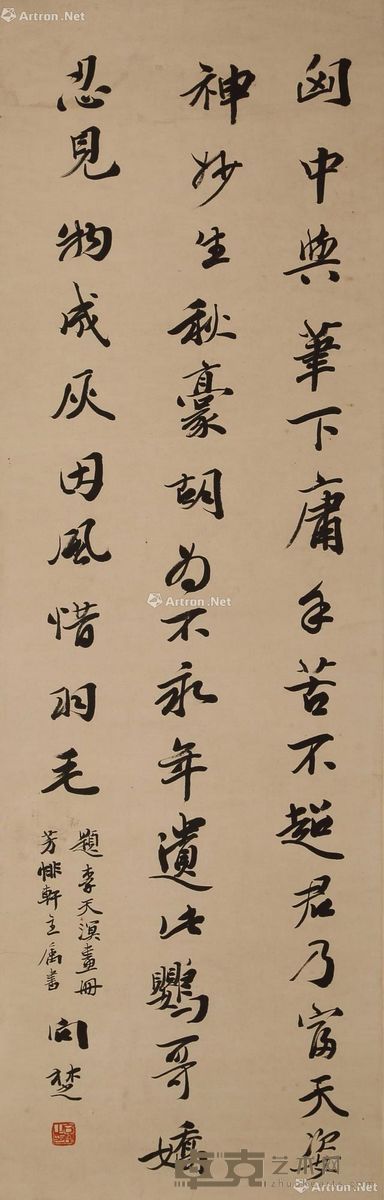 Artron.Net
Artron.Net
匈中與筆下庸手苦不超君乃富天姿
神妙生秋豪胡為不永年遺此鸚哥嬌
忍見物成灰因風惜羽毛
題李天溟畫冊
芳悱軒主屬書
向楚
Artron.Net
卓克艺术网
Artron.Net